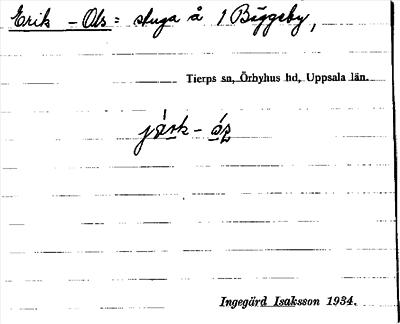 Erik - Ols = stuga å 1 Bäggeby,
Tierps sn, Örbyhus hd, Uppsala län.
Ingegärd Isaksson 1934.